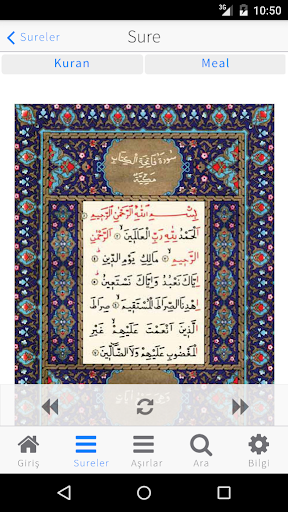 3G 10:50
Sureler
Sure
Kuran
Meal
سورة فاتحة الكتاب
مكية
بِسْمِ اللّٰهِ الرَّحْمٰنِ الرَّحِيمِ
اَلْحَمْدُ لِلّٰهِ رَبِّ الْعَالَمِينَ ۝ اَلرَّحْمٰنِ
الرَّحِيمِ ۝ مَالِكِ يَوْمِ الدِّينِ ۝
اِيَّاكَ نَعْبُدُ وَاِيَّاكَ نَسْتَعِينُ ۝
اِهْدِنَا الصِّرَاطَ الْمُسْتَقِيمَ ۝ صِرَاطَ
الَّذِينَ اَنْعَمْتَ عَلَيْهِمْ غَيْرِ
الْمَغْضُوبِ عَلَيْهِمْ وَلَا الضَّالِّينَ ۝
Giriş
Sureler
Aşırlar
Ara
Bilgi